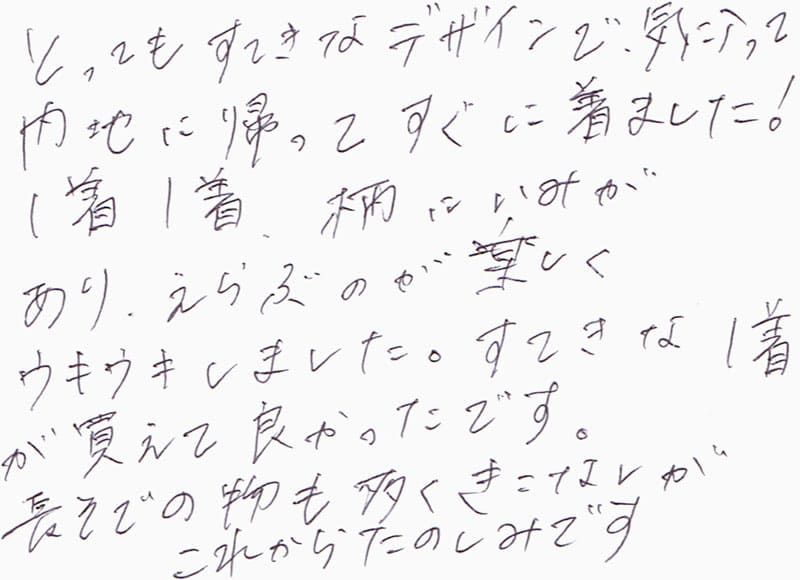 とってもすてきなデザインで、気に入って
内地に帰ってすぐに着ました!
1着1着、柄にいみが
あり、えらぶのが楽しく
ウキウキしました。すてきな1着
が買えて良かったです。
長そでの物も多くきこなしが
これからたのしみです